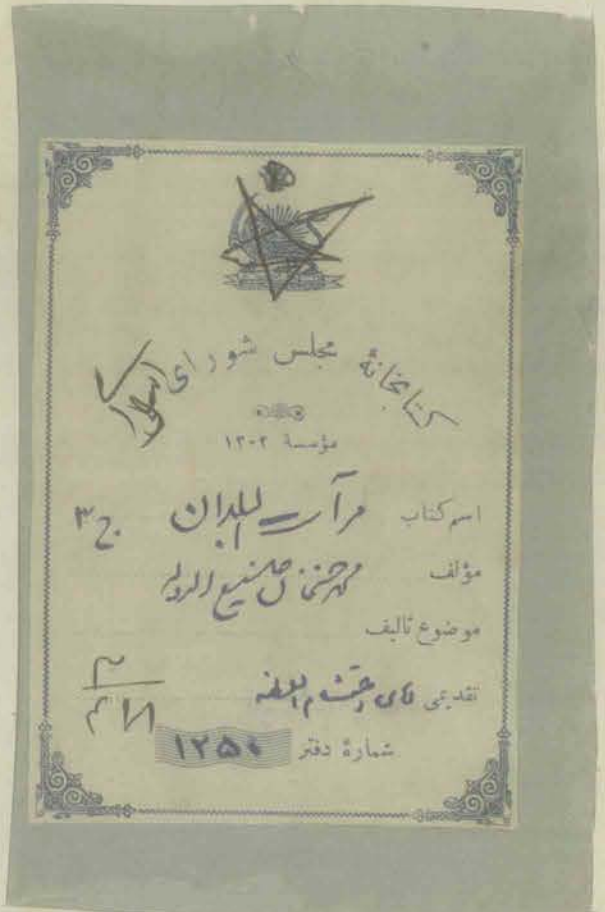 کتابخانهٔ مجلس شورای اسلامی
مؤسسهٔ ۱۳۰۲
اسم کتاب مرآت البلدان ج ۳
مؤلف محمد حسن خان صنیع الدوله
موضوع تألیف
تقدیمی آقای احتشام السلطنه
شمارهٔ دفتر ۱۲۵۰